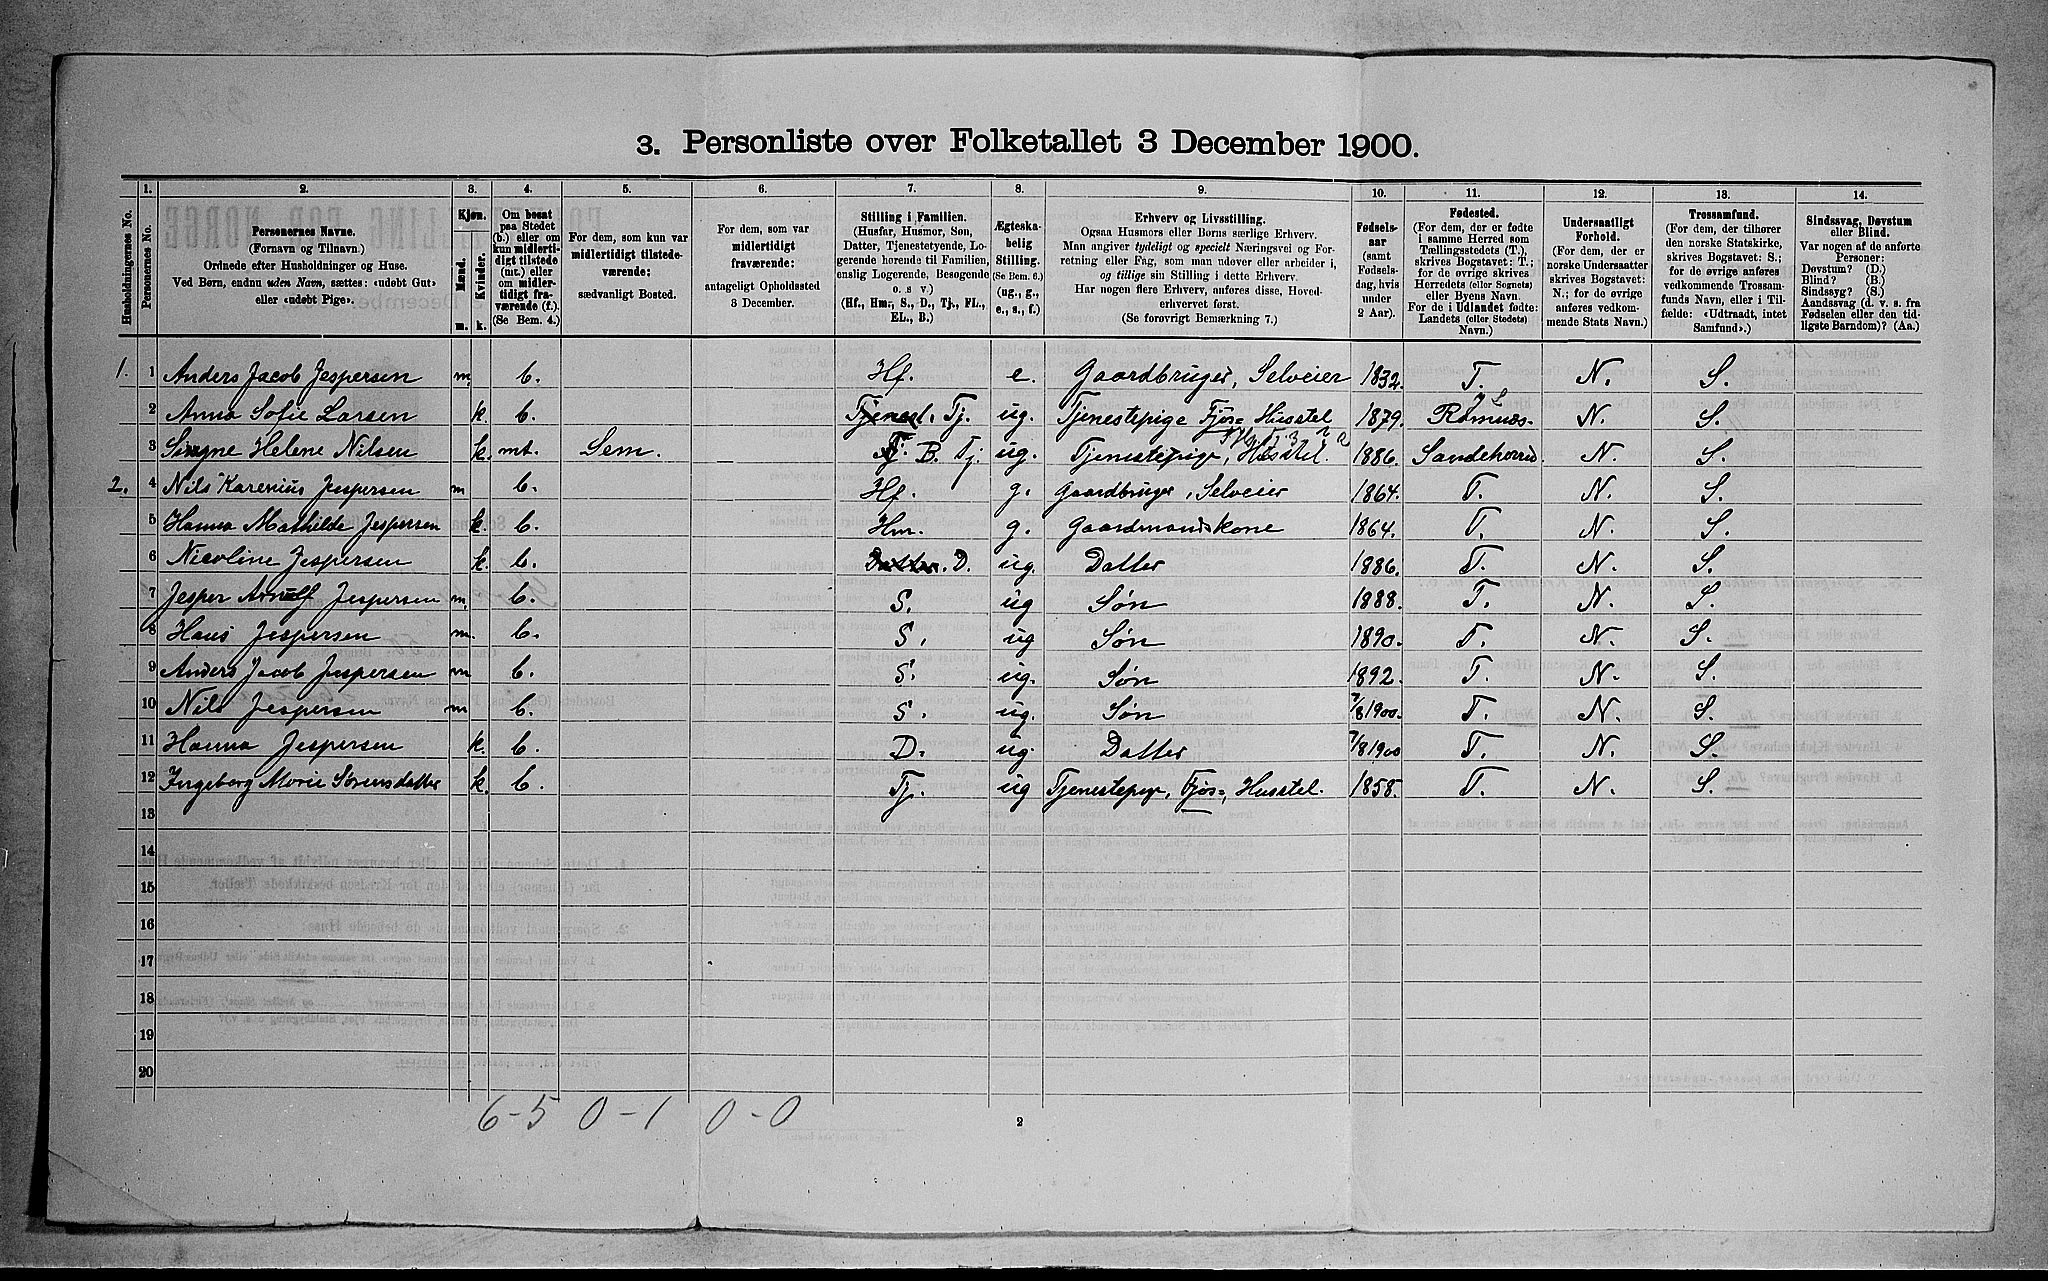 3. Personliste over Folketallet 3 December 1900.
Husholdningernes No.
1. Personernes No.
2. Personernes Navne. (Fornavn og Tilnavn.) Ordnede efter Husholdninger og Huse. Ved Børn, endnu uden Navn, sættes: «udøbt Gut» eller «udøbt Pige».
3. Kjøn. Mænd. m. Kvinder. k.
4. Om bosat paa Stedet (b.) eller om kun midlertidigt tilstede (mt.) eller om midlertidigt fraværende (f.). (Se Bem. 4.)
5. For dem, som kun var midlertidigt tilstedeværende: sædvanligt Bosted.
6. For dem, som var midlertidigt fraværende: antageligt Opholdssted 3 December.
7. Stilling i Familien. (Husfar, Husmor, Søn, Datter, Tjenestetyende, Logerende hørende til Familien, enslig Logerende, Besøgende o. s v.) (Hf., Hmr., S., D., Tj., FL., EL., B.)
8. Ægteskabelig Stilling. (Se Bem. 6.) (ug., g., e., s., f.)
9. Erhverv og Livsstilling. Ogsaa Husmors eller Børns særlige Erhverv. Man angiver tydeligt og specielt Næringsvei og Forretning eller Fag, som man udøver eller arbeider i, og tillige sin Stilling i dette Erhverv. Har nogen flere Erhverv, anføres disse, Hovederhvervet først. (Se forøvrigt Bemærkning 7.)
10. Fødselsaar (samt Fødselsdag, hvis under 2 Aar).
11. Fødested. (For dem, der er fødte i samme Herred som Tællingsstedets (T.), skrives Bogstavet: T.; for de øvrige skrives Herredets (eller Sognets) eller Byens Navn. For de i Udlandet fødte: Landets (eller Stedets) Navn.)
12. Undersaatligt Forhold. (For dem, der er norske Undersaatter skrives Bogstavet: N.; for de øvrige anføres vedkommende Stats Navn.)
13. Trossamfund. (For dem, der tilhører den norske Statskirke, skrives Bogstavet: S.; for de øvrige anføres vedkommende Trossamfunds Navn, eller i Tilfælde: «Udtraadt, intet Samfund».)
14. Sindssvag, Døvstum eller Blind. Var nogen af de anførte Personer: Døvstum? (D.) Blind? (B.) Sindssyg? (S.) Aandssvag (d. v. s. fra Fødselen eller den tidligste Barndom)? (Aa.)
1. 1 Anders Jacob Jespersen m. b. Hf. e. Gaardbruger, Selveier 1832. T. N. S.
2 Anna Sofie Larsen k. b. Tjenest. Tj. ug. Tjenestepige Fjøs= Husstel 1879. Ramnæs. N. S.
3 Signe Helene Nilsen k. mt. Sem. Tj. B. Tj. ug. Tjenestepige, Husstel. 1886. Sandeherred. N. S.
2. 4 Nils Karenius Jespersen m b. Hf. g. Gaardbruger, Selveier 1864. T. N. S.
5 Hanna Mathilde Jespersen k. b. Hm. g. Gaardmandskone 1864. T. N. S.
6 Nicoline Jespersen k. b. Datter. D. ug. Datter 1886. T. N. S.
7 Jesper Arnulf Jespersen m. b. S. ug Søn 1888. T. N. S.
8 Hans Jespersen m. b. S. ug Søn 1890. T. N. S.
9 Anders Jacob Jespersen m b. S. ug. Søn 1892. T. N. S.
10 Nils Jespersen m b. S. ug. Søn 7/8 1900. T. N. S.
11 Hanna Jespersen k. b. D. ug. Datter 7/8 1900 T. N. S.
12 Ingeborg Marie Sørensdatter k. b. Tj. ug Tjenestepige, Fjøs=, Husstel. 1858. T. N. S.
13
14
15
16
17
18
19
20
6-5 0-1 0-0
2